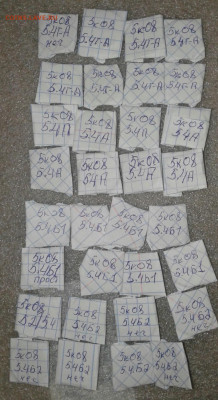 5к08
5.4Г-А
нечс
5к08
5.4Г-А
5к08
5.4Г-А
5к08
5.4Г-А
5к08
5.4Г-А
5к08
5.4Г-А
5к08
5.4Г-А
5к08
5.4Г-А
5к08
5.4А
5к08
5.4А
5к08
5.4А
5к08
5.4А
5к08
5.4А
5к08
5.4А
5к08
5.4А
5к08
5.4А
5к08
5.4Б1
5к08
5.4Б1
5к08
5.4Б1
5к08
5.4Б1
5к08
5.4Б1
5к08
5.4Б1
5к08
5.4Б1
5к08
5.4Б1
5к08
5к08
5.4Б2
5к08
5.4Б2
5к08
5.4Б2
нечс
5к08
5.4Б2
нечс
5к08
5.4Б2
нечс
5к08
5.4Б2
5к08
5.4Б2
нечс